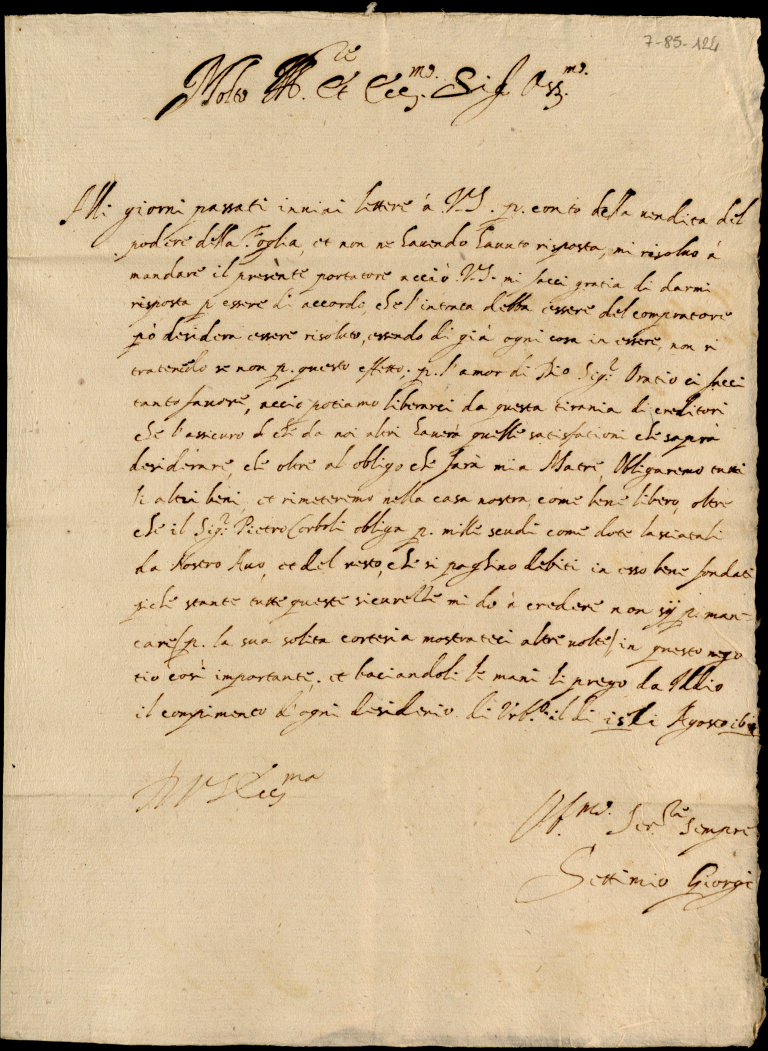 7-85-124
Molto Ill.re et Ecc.mo Sig.r Oss.mo
Alli giorni passati inviai lettere à V.S. p. conto della vendita del
podere della Foglia, et non ne havendo havuto risposta, mi risolvo à
mandare il presente portatore acciò V.S. mi facci gratia di darmi
risposta p essere di accordo, che l'intrata debba essere del compratore
però desidera essere risoluto, essendo di già ogni cosa in essere, non si
tratenedo se non p. questo effetto, p. l'amor di Dio Sig.r Oratio ci facci
tanto favore, acciò potiamo liberarci da questa tirania di creditori
che l'assicuro che da noi altri haverà quelle satisfationi che saprà
desiderare, che oltre al obligo che farà mia Matre, Obligaremo tutti
li altri beni, et rimeteremo nella casa nostra, come bene libero, oltre
che il Sig.r Pietro Corboli obliga p. mille scudi come dote lassiatali
da Nostro Avo, et del resto, che si paghino debiti in esso bene fondati
siche stante tutte queste sicurezze mi do à credere non sij p. man=
care (p. la sua solita cortesia mostrateci altre volte) in questo nego
tio così importante, et baciandoli le mani li prego da Iddio
il compimento d'ogni desiderio di Urb.o il dì 15 di Agosto
D V S Ecc.ma
Aff.mo Ser.re sempre
Settimio Giorgi